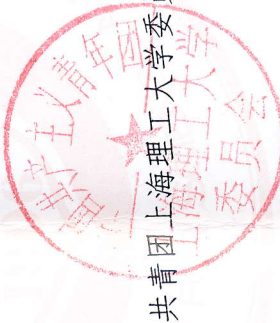 共青团上海理工大学委
共产主义青年团
上海理工大学
委员会